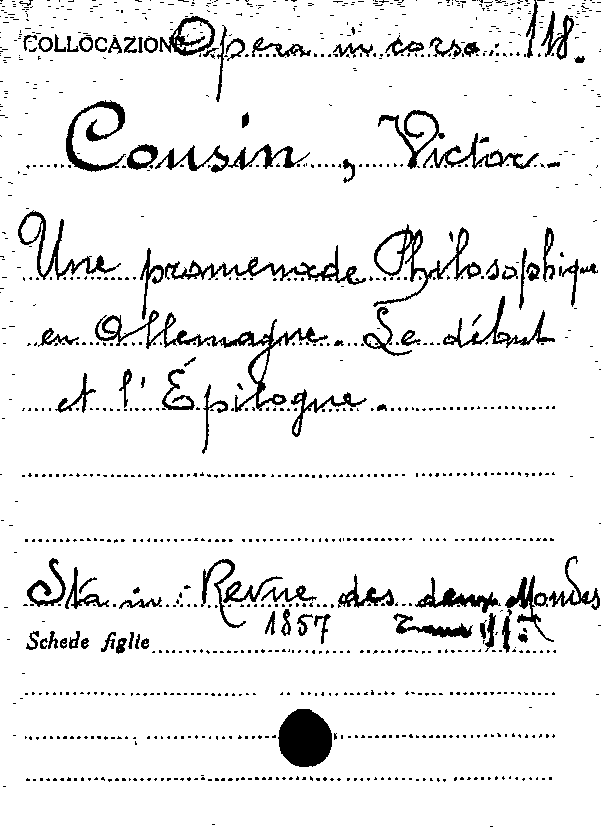 COLLOCAZIONE Opera in corso. 118.
Cousin, Victor.
Une promenade Philosophique
en Allemagne. Le début
et l'Épilogue.
Sta in: Revue des deux Mondes
1857
Schede figlie